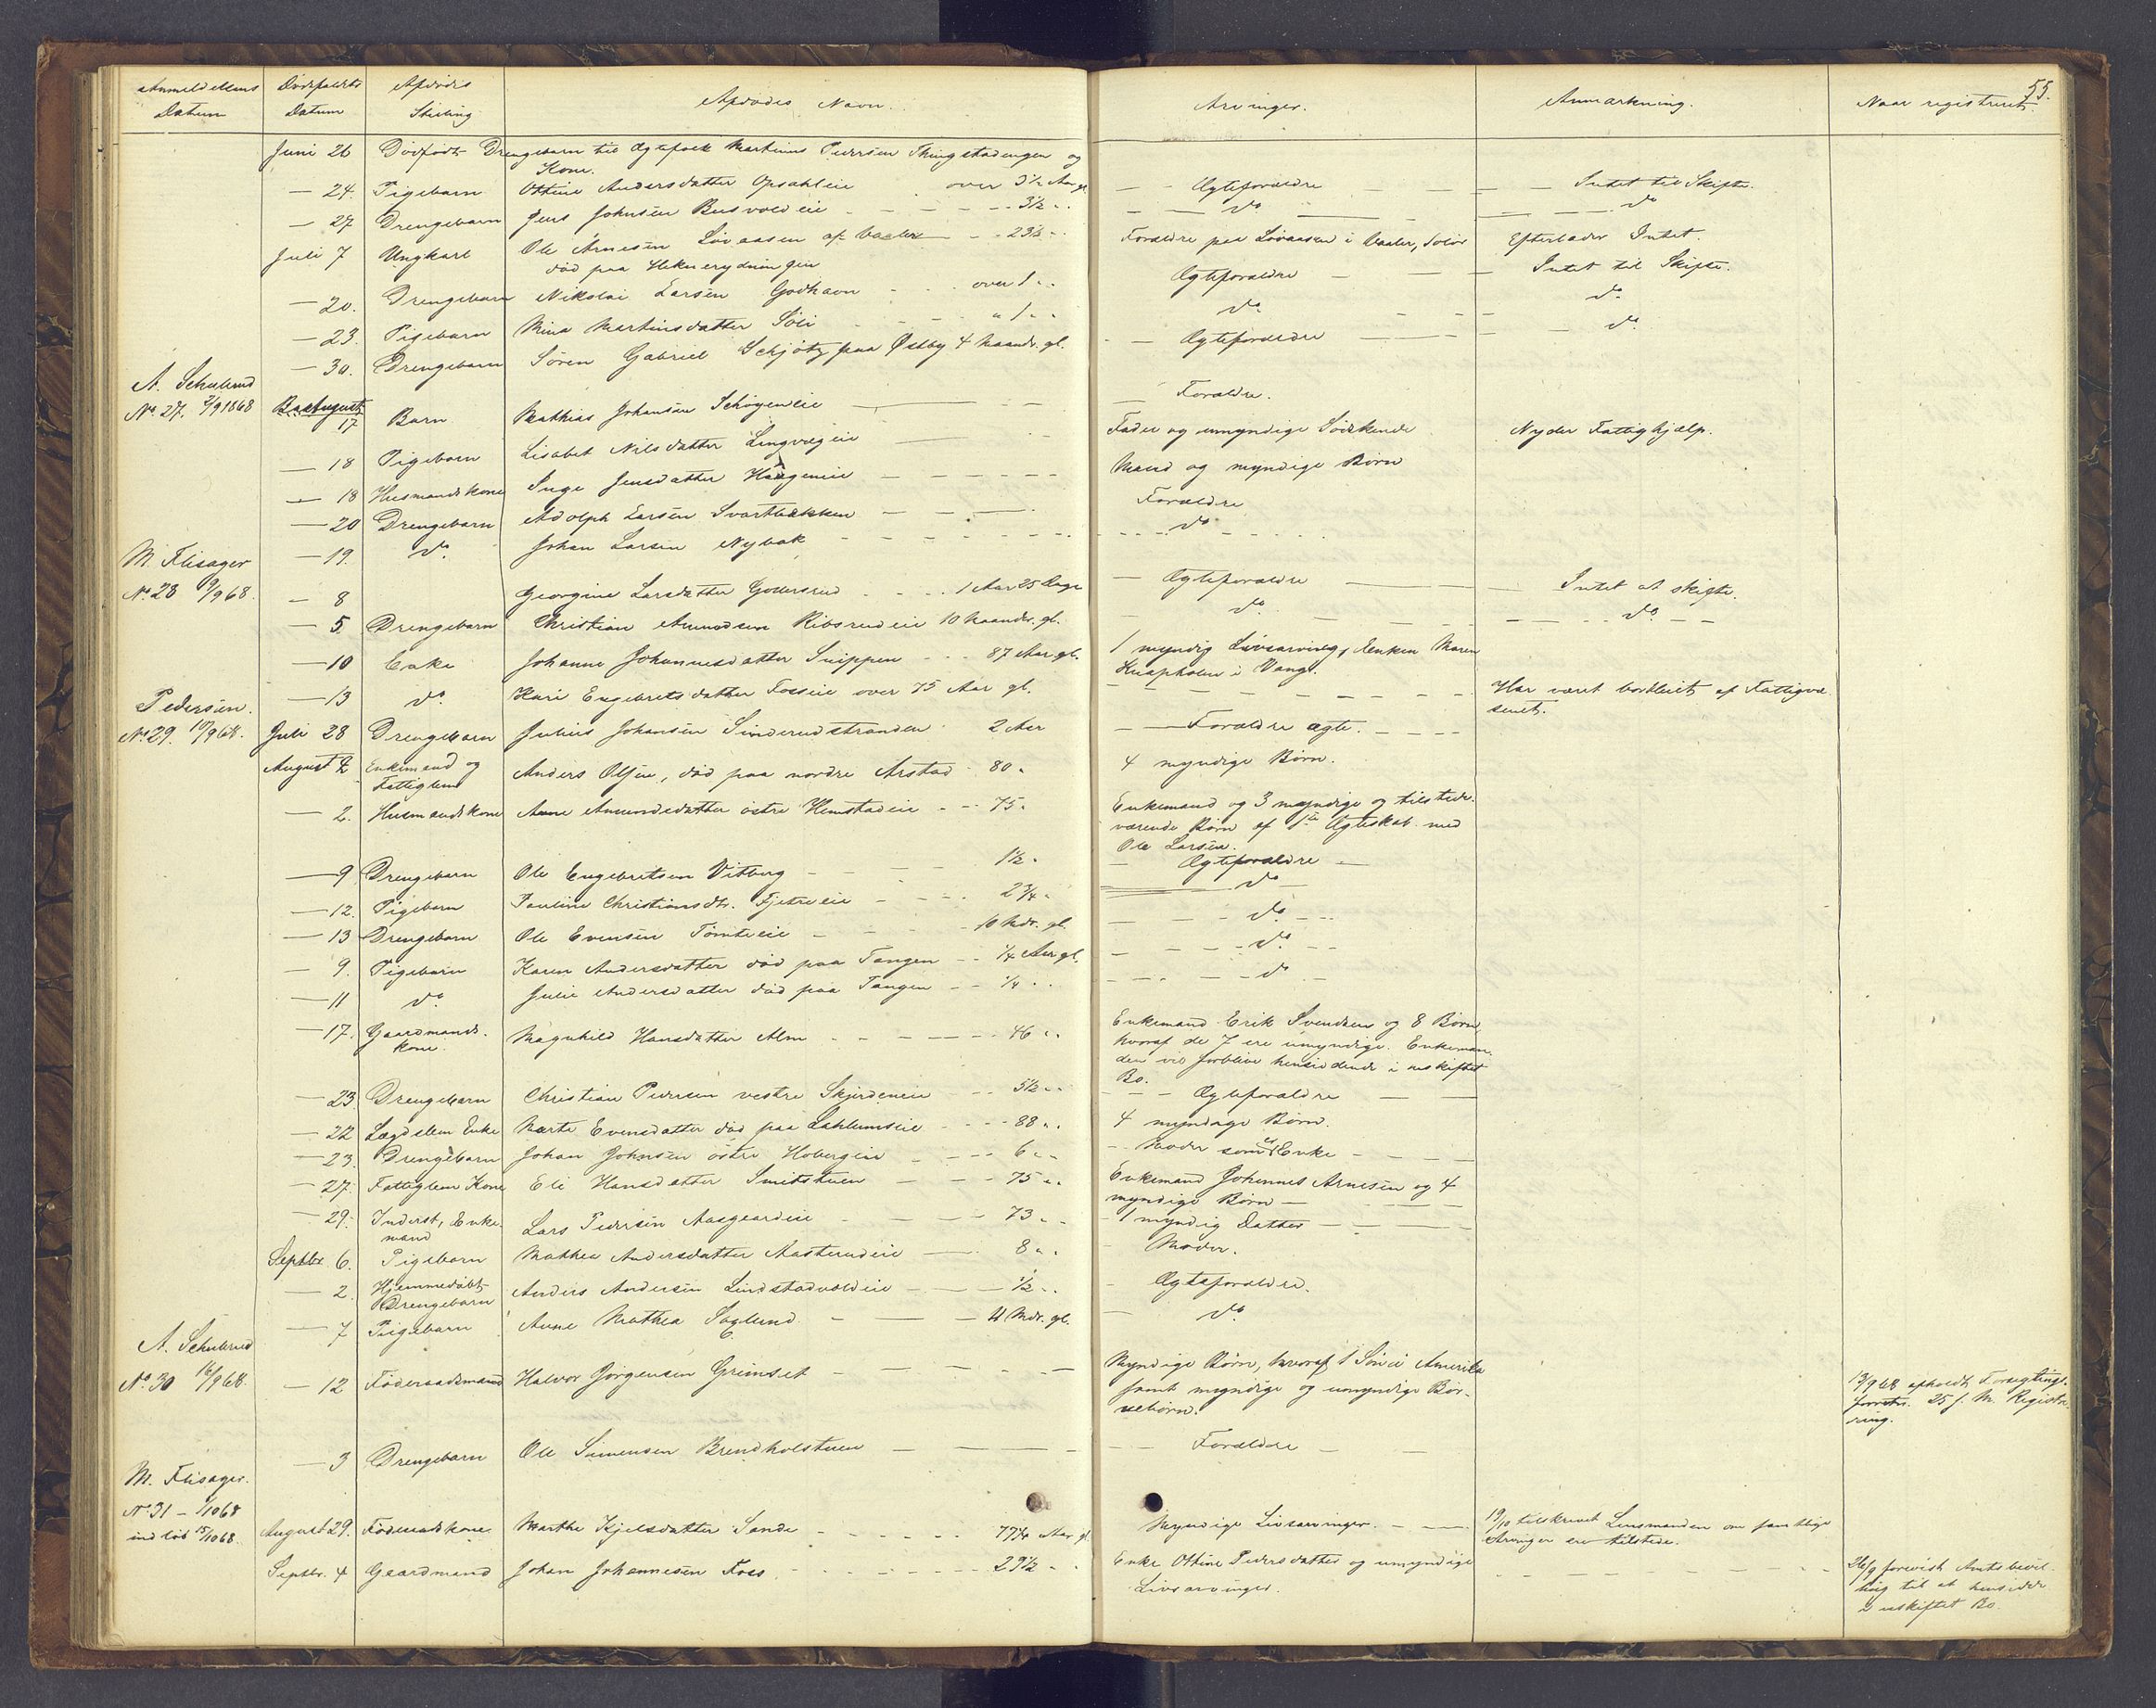 55.
Anmeldelsens Datum Dödsfaldets Datum Afdødes Stilling Afdødes Navn. Arvinger. Anmærkning. Naar registreret
Juni 26 Dødfødt Drengebarn til Ægtefolk Martinus Pedersen Thingstadengen og
Kone.
— 24. Pigebarn Ottine Andersdatter Opsahleie over 3½ Aar gl. — Ægteforældre — Intet til Skifte.
— 27 Drengebarn Jens Johnsen Busvoldeie 3½ do do
Juli 7 Ungkarl Ole Arnesen Løvaasen af Vaaler 23½ Forældre paa Løvaasen i Vaaler, Solør Efterlader Intet.
död paa Heknerydningen
— 20. Drengebarn Nikolai Larsen Godhavn over 1 Ægteforældre Intet til Skifte.
— 23. Pigebarn Mina Martinsdatter Söli " 1 do do
— 30. Drengebarn Sören Gabriel Schjötz paa Østby 4 Maander gl. Ægteforældre do
A. Schulerud
No 27. 2/9 1868 August 17 Barn Mathias Johansen Schøyeneie Forældre.
— 18 Pigebarn Lisabet Nilsdatter Lingvægeie Fader og umyndige Södskende Nyder Fattighjælp.
— 18 Husmandskone Inge Jensdatter Haugeneie Mand og myndige Børn
— 20 Drengebarn Adolph Larsen Svartbækken Forældre
— 19. do Johan Larsen Nybak do
M. Flisager
No 28 9/9 68. — 8 Georgine Larsdatter 1 Aar 25 Dage Ægteforældre Intet at skifte.
— 5. Drengebarn Christian Amundsen Ribsrudeie 10 Maander gl. do do
— 10 Enke Johanne Johannesdatter Snippen 87 Aar gl. 1 myndig Livsarving, Enken Maren
Knapholen i Vang.
— 13 do Kari Engebretsdatter Fosseie over 75 Aar gl. Har været bortleiet af Fattigvæ-
senet.
Pedersen.
No 29. 10/9 68. Juli 28 Drengebarn Julius Johansen Sinderudstranden 2 Aar Forældre ægte.
August 2 Enkemand og Fattiglem Anders Olsen, död paa nordre Arstad 80 " 4 myndige Børn.
— 2. Husmandskone Anne Amundsdatter östre Hemstadeie 75 " Enkemand og 3 myndige og tilstede-
værende Børn af 1ste Ægteskab med
Ole Larsen.
— 9 Drengebarn Ole Engebretsen Vitberg 1½ " Ægteforældre
— 12. Pigebarn Pauline Christiansdtr. Fjetreeie 2¾ " do
— 13 Drengebarn Ole Evensen Tomteeie 10 Mdr. gl. do
— 9. Pigebarn Karen Andersdatter död paa Tangen ¼ Aar gl. do
— 11 do Julie Andersdatter död paa Tangen ¼ do
— 17. Gaardmands-kone Magnhild Hansdatter Alm 46 Enkemand Erik Svendsen og 8 Børn,
hvoraf de 7 ere umyndige. Enkeman-
den vil forblive hensiddende i uskiftet
Bo.
— 23. Drengebarn Christian Pedersen vestre Skjerdeneie 5½ Ægteforældre
— 22 Lægdslem Enke Marte Evensdatter död paa Lahlumseie 88 4 myndige Børn.
— 23. Drengebarn Johan Johnsen östre Hobergeie 6 Moder som er Enke
— 27. Fattiglem Kone Eli Hansdatter Smitstuen 75 Enkemand Johannes Arnesen og 4
myndige Børn
— 29. Inderst, Enkemand Lars Pedersen Aasgaardeie 73 1 myndig Datter
Septbr. 6. Pigebarn Mathea Andersdatter Aasterudeie 8 Moder.
— 2. Hjemmedøbt Drengebarn Anders Andersen Lindstadvoldeie ½ Ægteforældre.
— 7 Pigebarn Anne Mathea Saglund 4 Mdr. gl. do
A. Schulerud
No 30 16/9 68. — 12 Föderaadsmand Halvor Jörgensen Grimset Myndige Børn, hvoraf 1 Søn i Amerika
samt myndige og umyndige Bør-
nebørn.
13/9 68 afholdt Forseglings-
forretn. 25 s. M. Registre-
ring.
— 3 Drengebarn Ole Simensen Brendholstuen Forældre
M. Flisager.
No 31 – 1/10 68
indløb 15/10 68. August 29. Föderaadskone Marthe Kjelsdatter Sande 77¼ Aar gl. Myndige Livsarvinger. 19/10 tilskrevet Lensmanden om samtlige
Arvinger ere tilstede.
Septbr. 4 Gaardmand Johan Johannesen Foss. 29½ Enke Ottine Pedersdatter og umyndige
Livsarvinger.
26/9 forevist Amtsbevil-
ling til at hensidde
i uskiftet Bo.